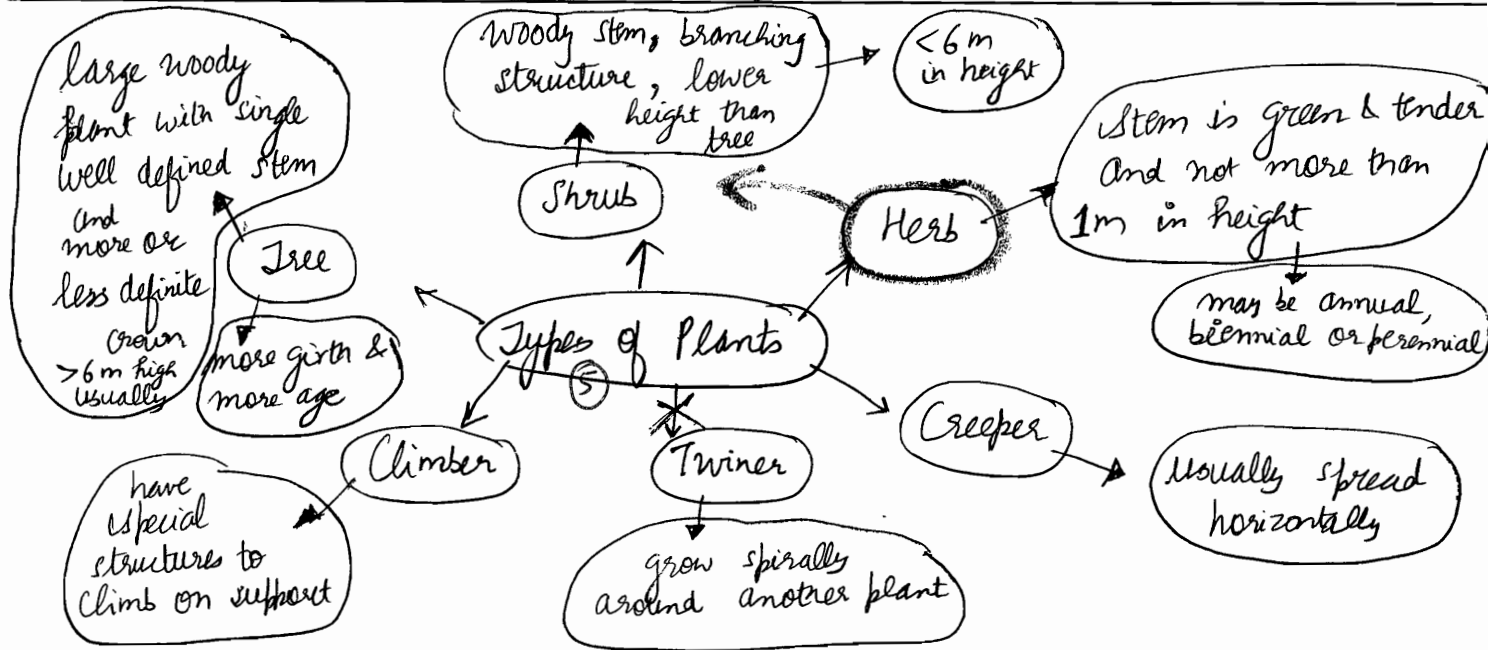 large woody
plant with single
well defined stem
and
more or
less definite
crown
>6 m high
usually
Tree
more girth &
more age
Woody stem, branching
structure, lower
height than
tree
<6 m
in height
Shrub
Herb
Stem is green & tender
and not more than
1m in height
may be annual,
biennial or perennial
Types of Plants
5
Climber
have
special
structures to
climb on support
Twiner
grow spirally
around another plant
Creeper
usually spread
horizontally